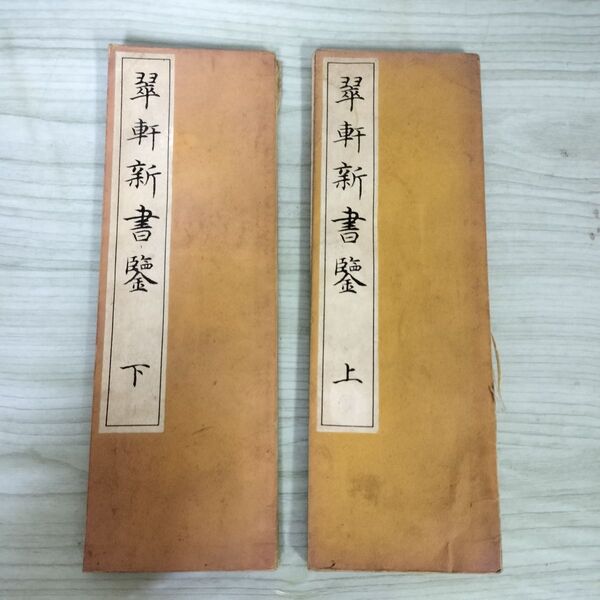 翠軒新書鑒
上
翠軒新書鑒
下